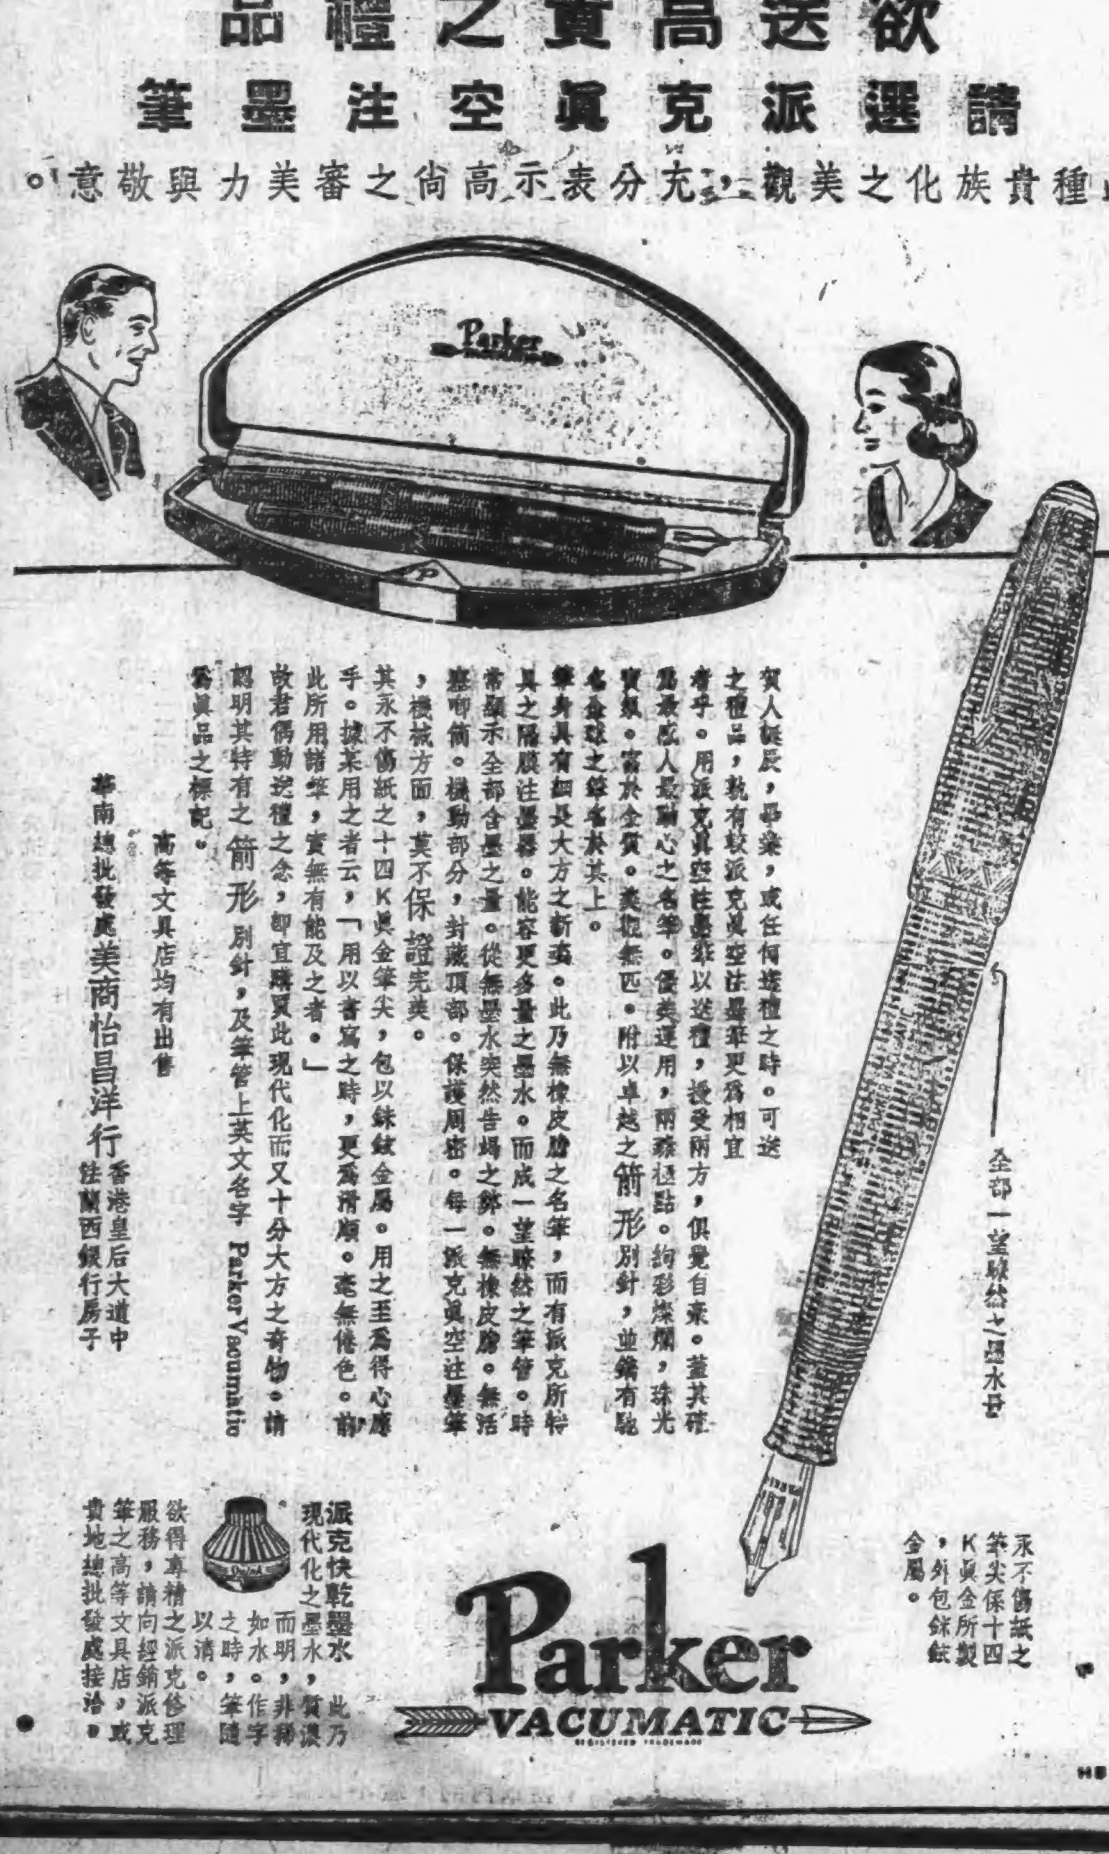 欲送高貴之禮品
請選派克眞空注墨筆
種貴族化之美觀，充分表示高尙之審美力與敬意。
Parker
賀人誕辰，畢業，或任何送禮之時。可送
之禮品，孰有較派克眞空注墨筆更爲相宜
者乎。用派克眞空注墨筆以送禮，授受兩方，俱覺自豪。蓋其確
爲最感人最動心之名筆。優美運用，兩臻極點。絢彩燦爛，珠光
寶氣。富於金質。美觀無匹。附以卓越之箭形別針，並鐫有馳
名全球之筆名於其上。
筆身具有細長大方之新姿。此乃無橡皮膽之名筆，而有派克所特
具之隔膜注墨器。能容更多量之墨水。而成一望瞭然之筆管。時
常顯示全部含墨之量。從無墨水突然告竭之弊。無橡皮膽。無活
塞唧筒。機動部分，封藏頂部。保護周密。每一派克眞空注墨筆
，機械方面，莫不保證完美。
其永不傷紙之十四K眞金筆尖，包以銥鉉金屬。用之至爲得心應
手。據某用之者云，「用以書寫之時，更爲滑順。毫無倦色。前
此所用諸筆，實無有能及之者。」
故君偶動送禮之念，卽宜購買此現代化而又十分大方之奇物。請
認明其特有之箭形別針，及筆管上英文名字 Parker Vacumatic
爲眞品之標記。
高等文具店均有出售
華南總批發處美商怡昌洋行
香港皇后大道中
法蘭西銀行房子
全部一望瞭然之墨水
永不傷紙之
筆尖係十四
K眞金所製
，外包銥鉉
金屬。
派克快乾墨水 此乃
現代化之墨水，質濃
而明，非稀
如水。作字
之時，筆隨
以清。
Quink
欲得專精之派克修理
服務，請向經銷派克
筆之高等文具店，或
貴地總批發處接洽。
Parker
VACUMATIC
REGISTERED TRADEMARK